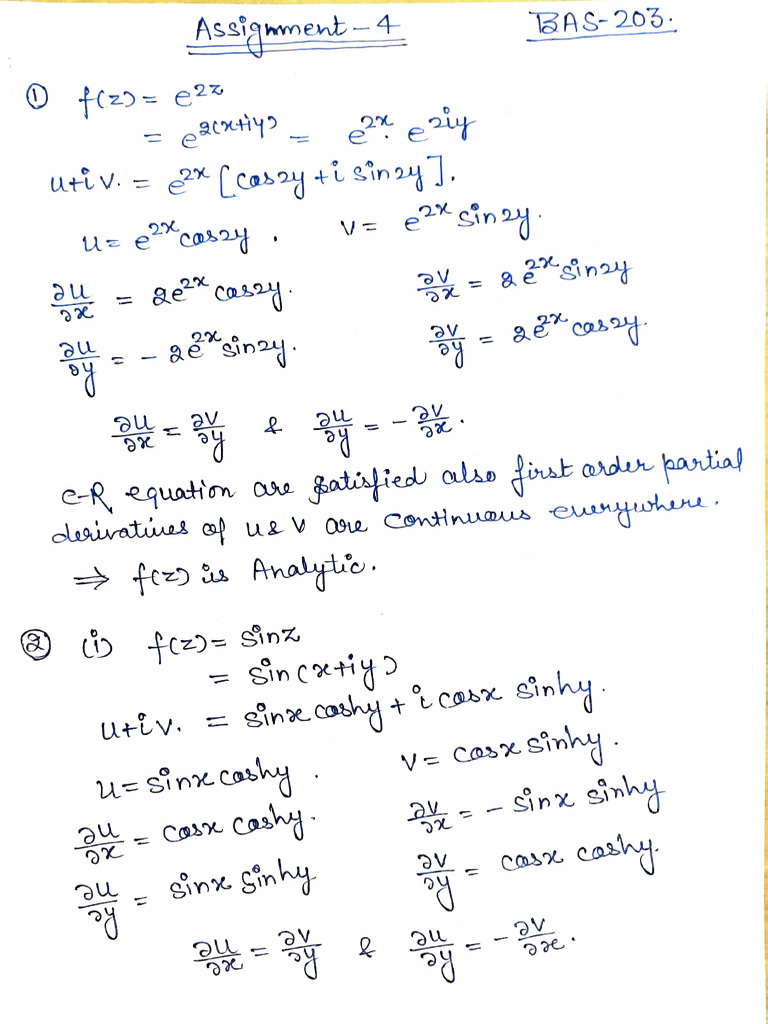 Assignment-4 BAS-203.
① f(z) = e^{2z}
= e^{2(x+iy)} = e^{2x}. e^{2iy}
u+iv. = e^{2x} [cos2y + i sin2y].
u = e^{2x}cos2y. v = e^{2x}sin2y.
∂u/∂x = 2e^{2x}cos2y. ∂v/∂x = 2e^{2x}sin2y
∂u/∂y = -2e^{2x}sin2y. ∂v/∂y = 2e^{2x}cos2y.
∂u/∂x = ∂v/∂y & ∂u/∂y = -∂v/∂x.
C-R equation are satisfied also first order partial
derivatives of u & v are continuous everywhere.
⇒ f(z) is Analytic.
② (i) f(z) = sinz
= sin(x+iy)
u+iv. = sinx coshy + i cosx sinhy.
u = sinx coshy. v = cosx sinhy.
∂u/∂x = cosx coshy. ∂v/∂x = - sinx sinhy
∂u/∂y = sinx sinhy ∂v/∂y = cosx coshy.
∂u/∂x = ∂v/∂y & ∂u/∂y = -∂v/∂x.